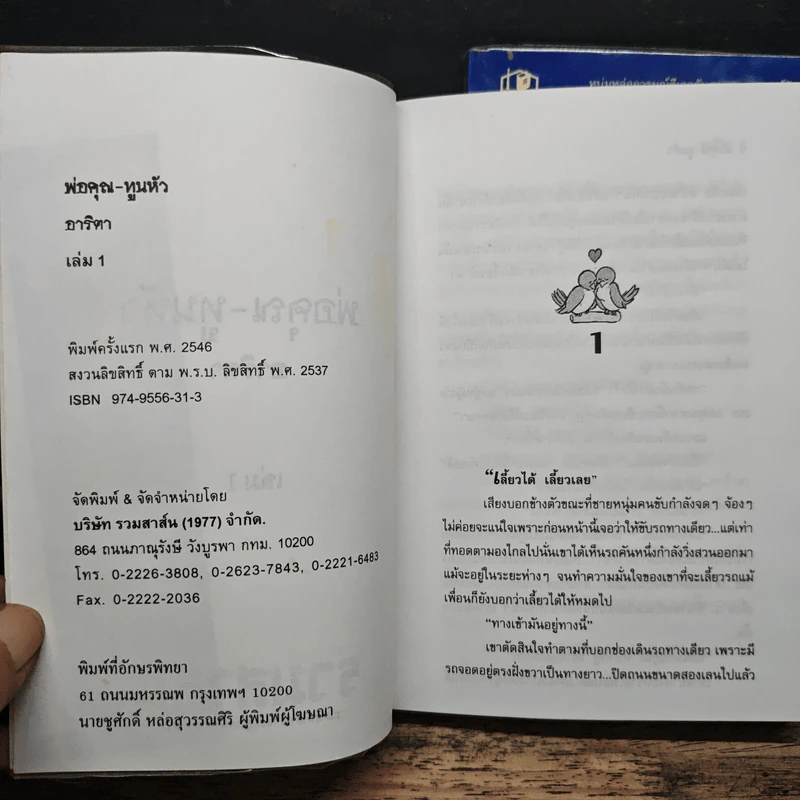 พ่อคุณ-ทูนหัว
อาริตา
เล่ม 1
พิมพ์ครั้งแรก พ.ศ. 2546
สงวนลิขสิทธิ์ ตาม พ.ร.บ. ลิขสิทธิ์ พ.ศ. 2537
ISBN 974-9556-31-3
จัดพิมพ์ & จัดจำหน่ายโดย
บริษัท รวมสาส์น (1977) จำกัด.
864 ถนนภาณุรังษี วังบูรพา กทม. 10200
โทร. 0-2226-3808, 0-2623-7843, 0-2221-6483
Fax. 0-2222-2036
พิมพ์ที่อักษรพิทยา
61 ถนนมหรรณพ กรุงเทพฯ 10200
นายชูศักดิ์ หล่อสุวรรณศิริ ผู้พิมพ์ผู้โฆษณา
1
“เลี้ยวได้ เลี้ยวเลย”
เสียงบอกข้างตัวขณะที่ชายหนุ่มคนขับกำลังจดๆ จ้องๆ
ไม่ค่อยจะแน่ใจเพราะก่อนหน้านี้เจอว่าให้ขับรถทางเดียว...แต่เท่า
ที่ทอดตามองไกลไปนั่นเขาได้เห็นรถคันหนึ่งกำลังวิ่งสวนออกมา
แม้จะอยู่ในระยะห่างๆ จนทำความมั่นใจของเขาที่จะเลี้ยวรถแม้
เพื่อนก็ยังบอกว่าเลี้ยวได้ให้หมดไป
“ทางเข้ามันอยู่ทางนี้”
เขาตัดสินใจทำตามที่บอกช่องเดินรถทางเดียว เพราะมี
รถจอดอยู่ตรงฝั่งขวาเป็นทางยาว...ปิดถนนขนาดสองเลนไปแล้ว